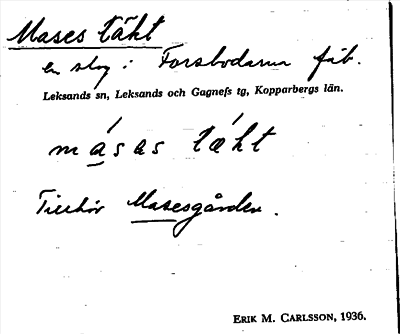 Mases täkt
en slog i Forsbodarna fäb.
Leksands sn, Leksands och Gagnefs tg, Kopparbergs län.
másas tǽkt
Tillhör Masesgården.
ERIK M. CARLSSON, 1936.